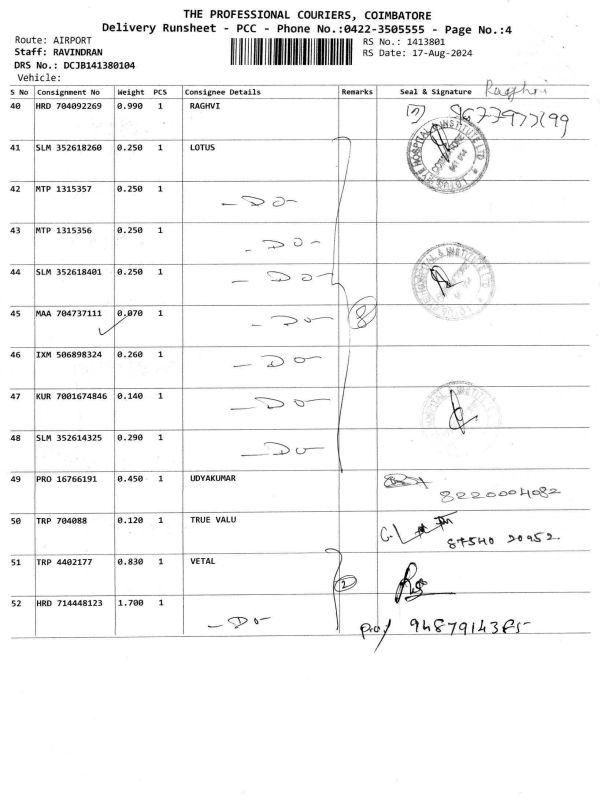 THE PROFESSIONAL COURIERS, COIMBATORE
Delivery Runsheet - PCC - Phone No.:0422-3505555 - Page No.:4
Route: AIRPORT RS No.: 1413801
Staff: RAVINDRAN RS Date: 17-Aug-2024
DRS No.: DCJB141380104
Vehicle:
S No Consignment No Weight PCS Consignee Details Remarks Seal & Signature
40 HRD 704092269 0.990 1 RAGHVI
41 SLM 352618260 0.250 1 LOTUS
42 MTP 1315357 0.250 1 -Do-
43 MTP 1315356 0.250 1 -Do-
44 SLM 352618401 0.250 1 -Do-
45 MAA 704737111 0.070 1 -Do- 8
46 IXM 506898324 0.260 1 -Do-
47 KUR 7001674846 0.140 1 -Do-
48 SLM 352614325 0.290 1 -Do-
49 PRO 16766191 0.450 1 UDYAKUMAR 8220004082
50 TRP 704088 0.120 1 TRUE VALU 87540 20952
51 TRP 4402177 0.830 1 VETAL 2
52 HRD 714448123 1.700 1 -Do-